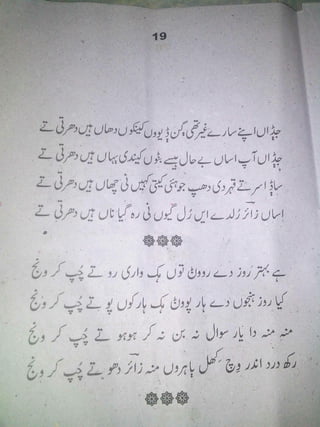 19
جݙاں اپنے سارے غیر تھی ڳن ݙیووں کینکوں دھاں ہیں دھرتی تے
جݙاں آپ اساں بے حال جیسے بݨوں کیندی پہاں ہیں دھرتی تے
ساݙا سر تے قہر دی دھپ جو ہئی کیتی کہیں نی چھاں ہیں دھرتی تے
اساں زائر رُلدے ایں رُل ڳیوں نی رہ ڳیا ناں ہیں دھرتی تے
ہے بہتر روز دے روون توں ہک واری رو تے چُپ کر ونج
کیا روز ہنجوں دے ہار پوون ہک ہار کوں پو تے چُپ کر ونج
منہ منہ دا یار سوال نہ بن نہ کر ہو ہو تے چُپ کر ونج
رکھ درد اندر وچ کھل باہروں منہ زائر دھو تے چُپ کر ونج